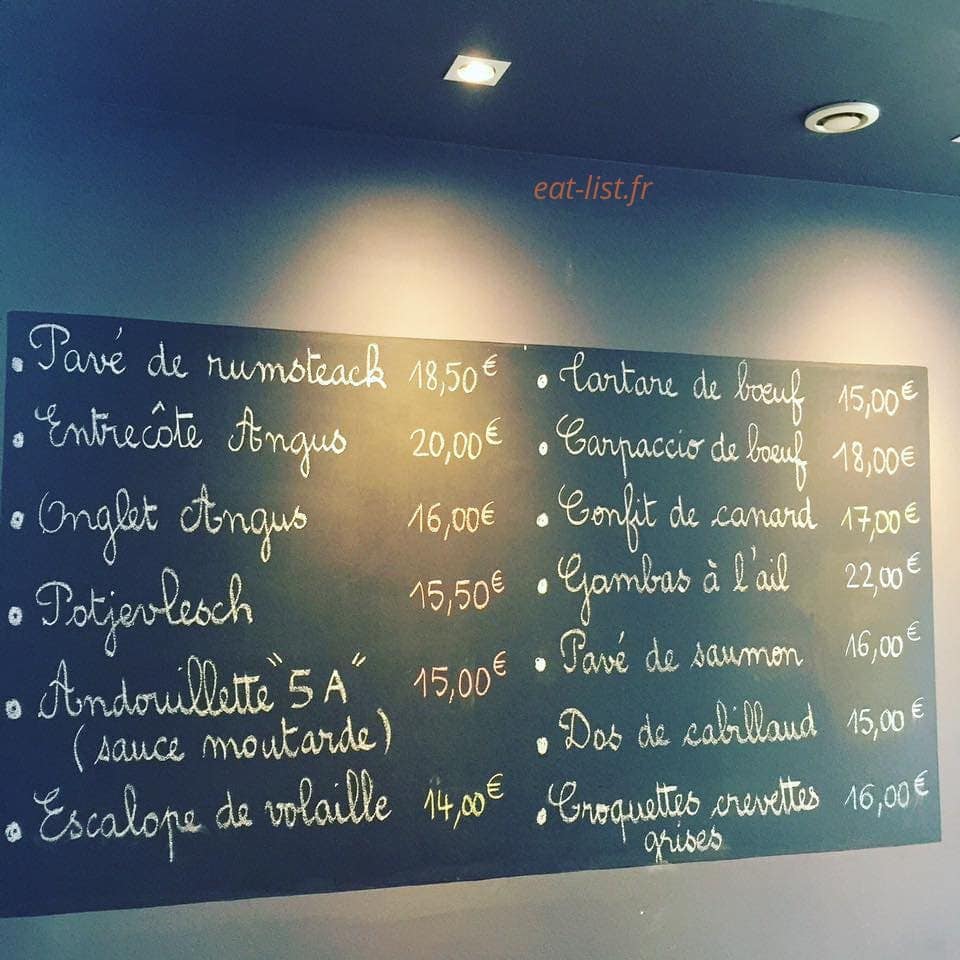 eat-list.fr
• Pavé de rumsteack 18,50€
• Entrecôte Angus 20,00€
• Onglet Angus 16,00€
• Potjevlesch 15,50€
• Andouillette "5A" 15,00€
(sauce moutarde)
• Escalope de volaille 14,00€
• Tartare de bœuf 15,00€
• Carpaccio de boeuf 18,00€
• Confit de canard 17,00€
• Gambas à l'ail 22,00€
• Pavé de saumon 16,00€
• Dos de cabillaud 15,00€
• Croquettes crevettes 16,00€
grises